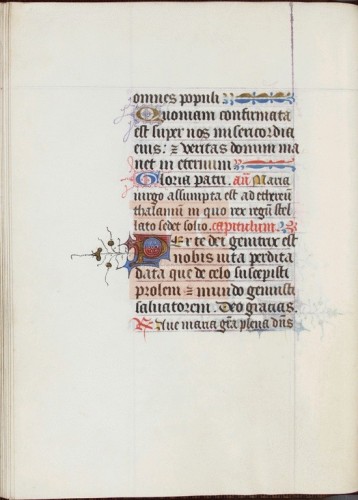 omnes populi
Quoniam confirmata
est super nos misericordia
eius: z veritas domini ma
net in eternum
Gloria patri. añ Maria
virgo assumpta est ad ethereũ
thalamũ in quo rex regũ stel
lato sedet solio. capitulum.
Per te dei genitrix est
nobis vita perdita
data que de celo suscepisti
prolem z mundo genuisti
saluatorem. Deo gracias.
R Aue maria gr̃a plena dñs